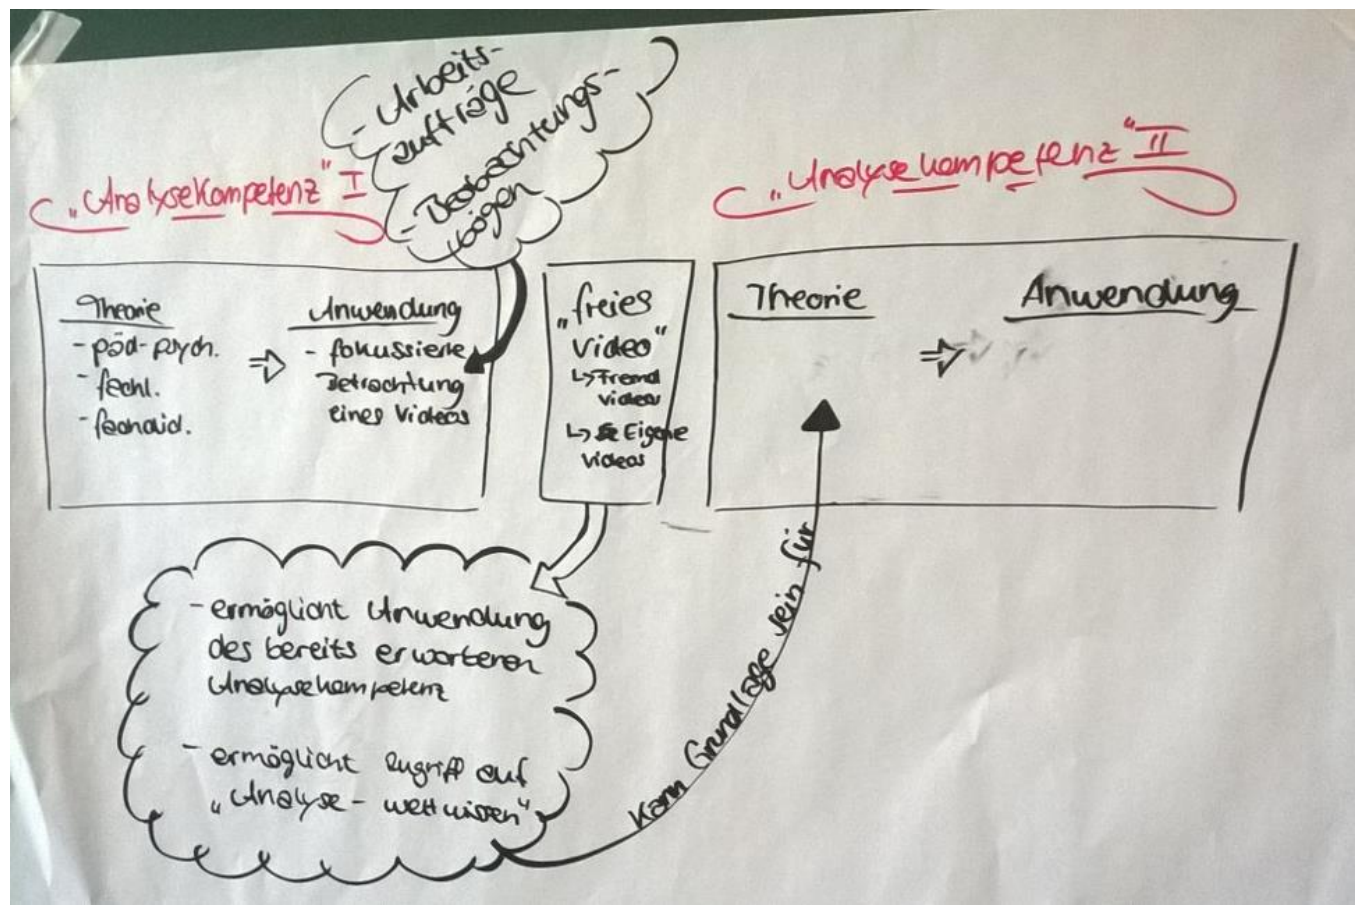 - Arbeits-
aufträge
- Beobachtungs-
bögen
„Analysekompetenz“ I
„Analysekompetenz“ II
Theorie
- päd-psych.
- fachl.
- fachdid.
⇒
Anwendung
- fokussierte
Betrachtung
eines Videos
„freies
Video“
↳ Fremd
videos
↳ Eigene
Videos
Theorie
⇒
Anwendung
- ermöglicht Anwendung
des bereits erworbenen
Analysekompetenz
- ermöglicht Zugriff auf
„Analyse-weltwissen“
Kann Grundlage sein für